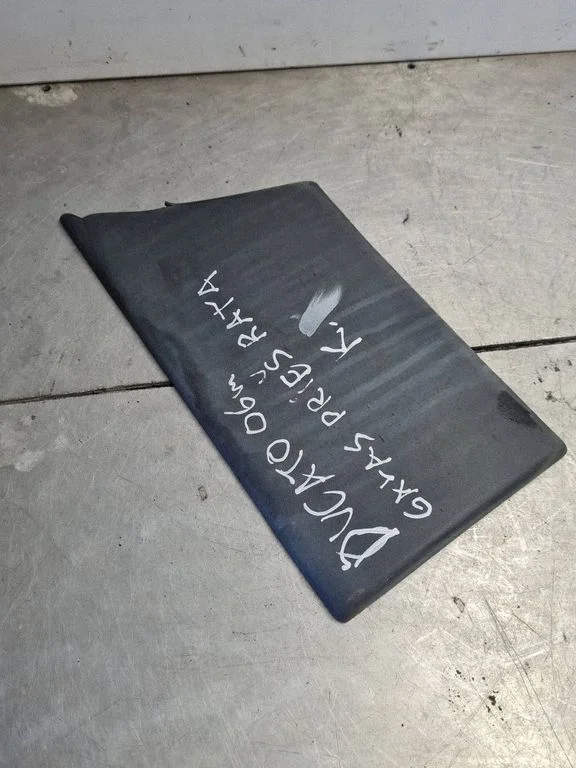 DUCATO 06m
GALAS PRIEŠ RATA
K.